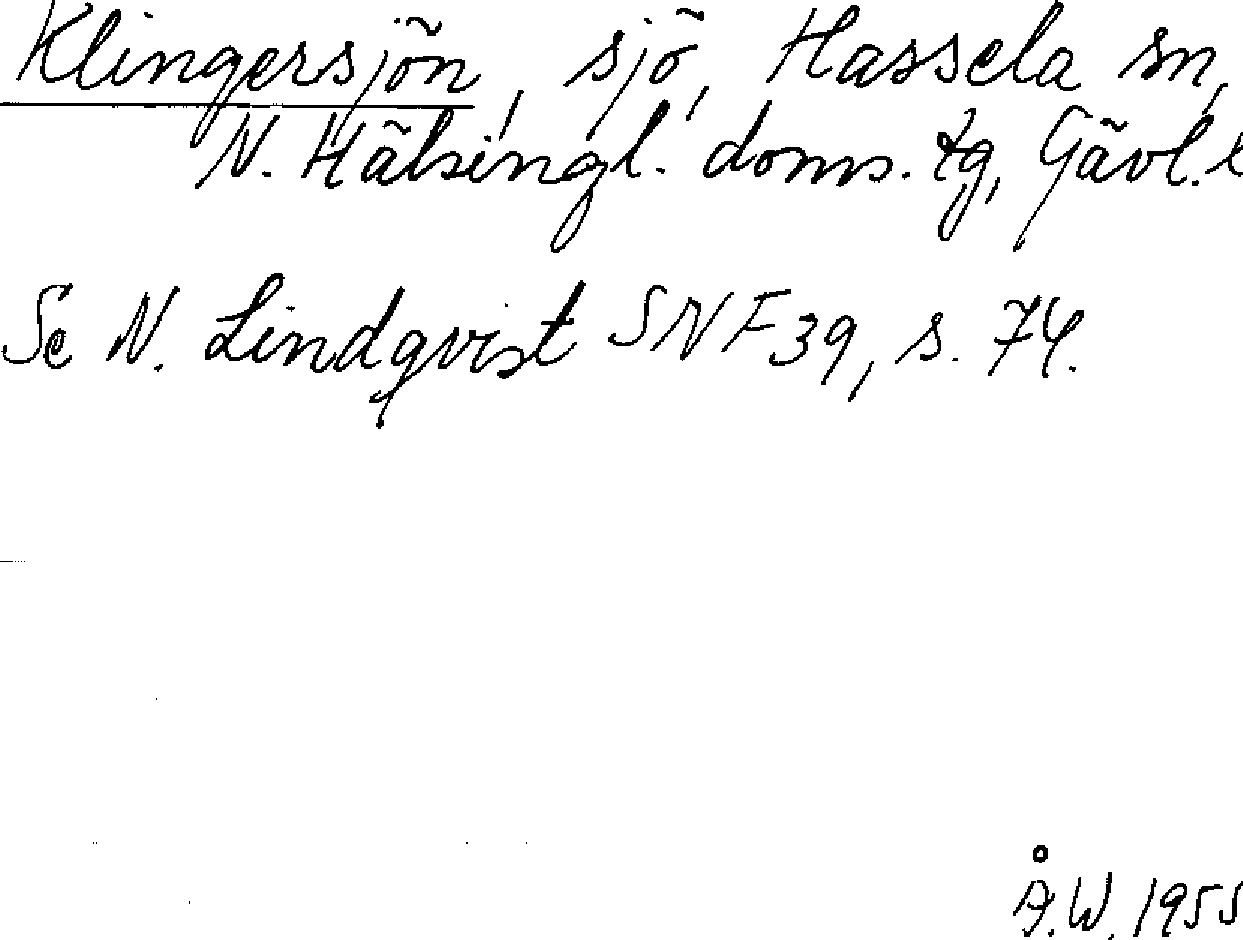 Klingersjön, sjö, Hassela sn,
N. Hälsingl. doms. tg, Gävl. l
Se N. Lindqvist SNF 39, s. 74.
Å.W. 1955